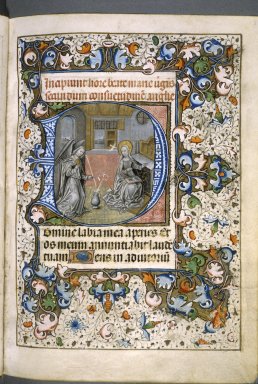 Incipiunt hore beate marie v̄gīs
secundum consuetudinē anglie
Domine labia mea aperies Et
os meum annuntiabit laudē
tuam Deus in adiutoriū